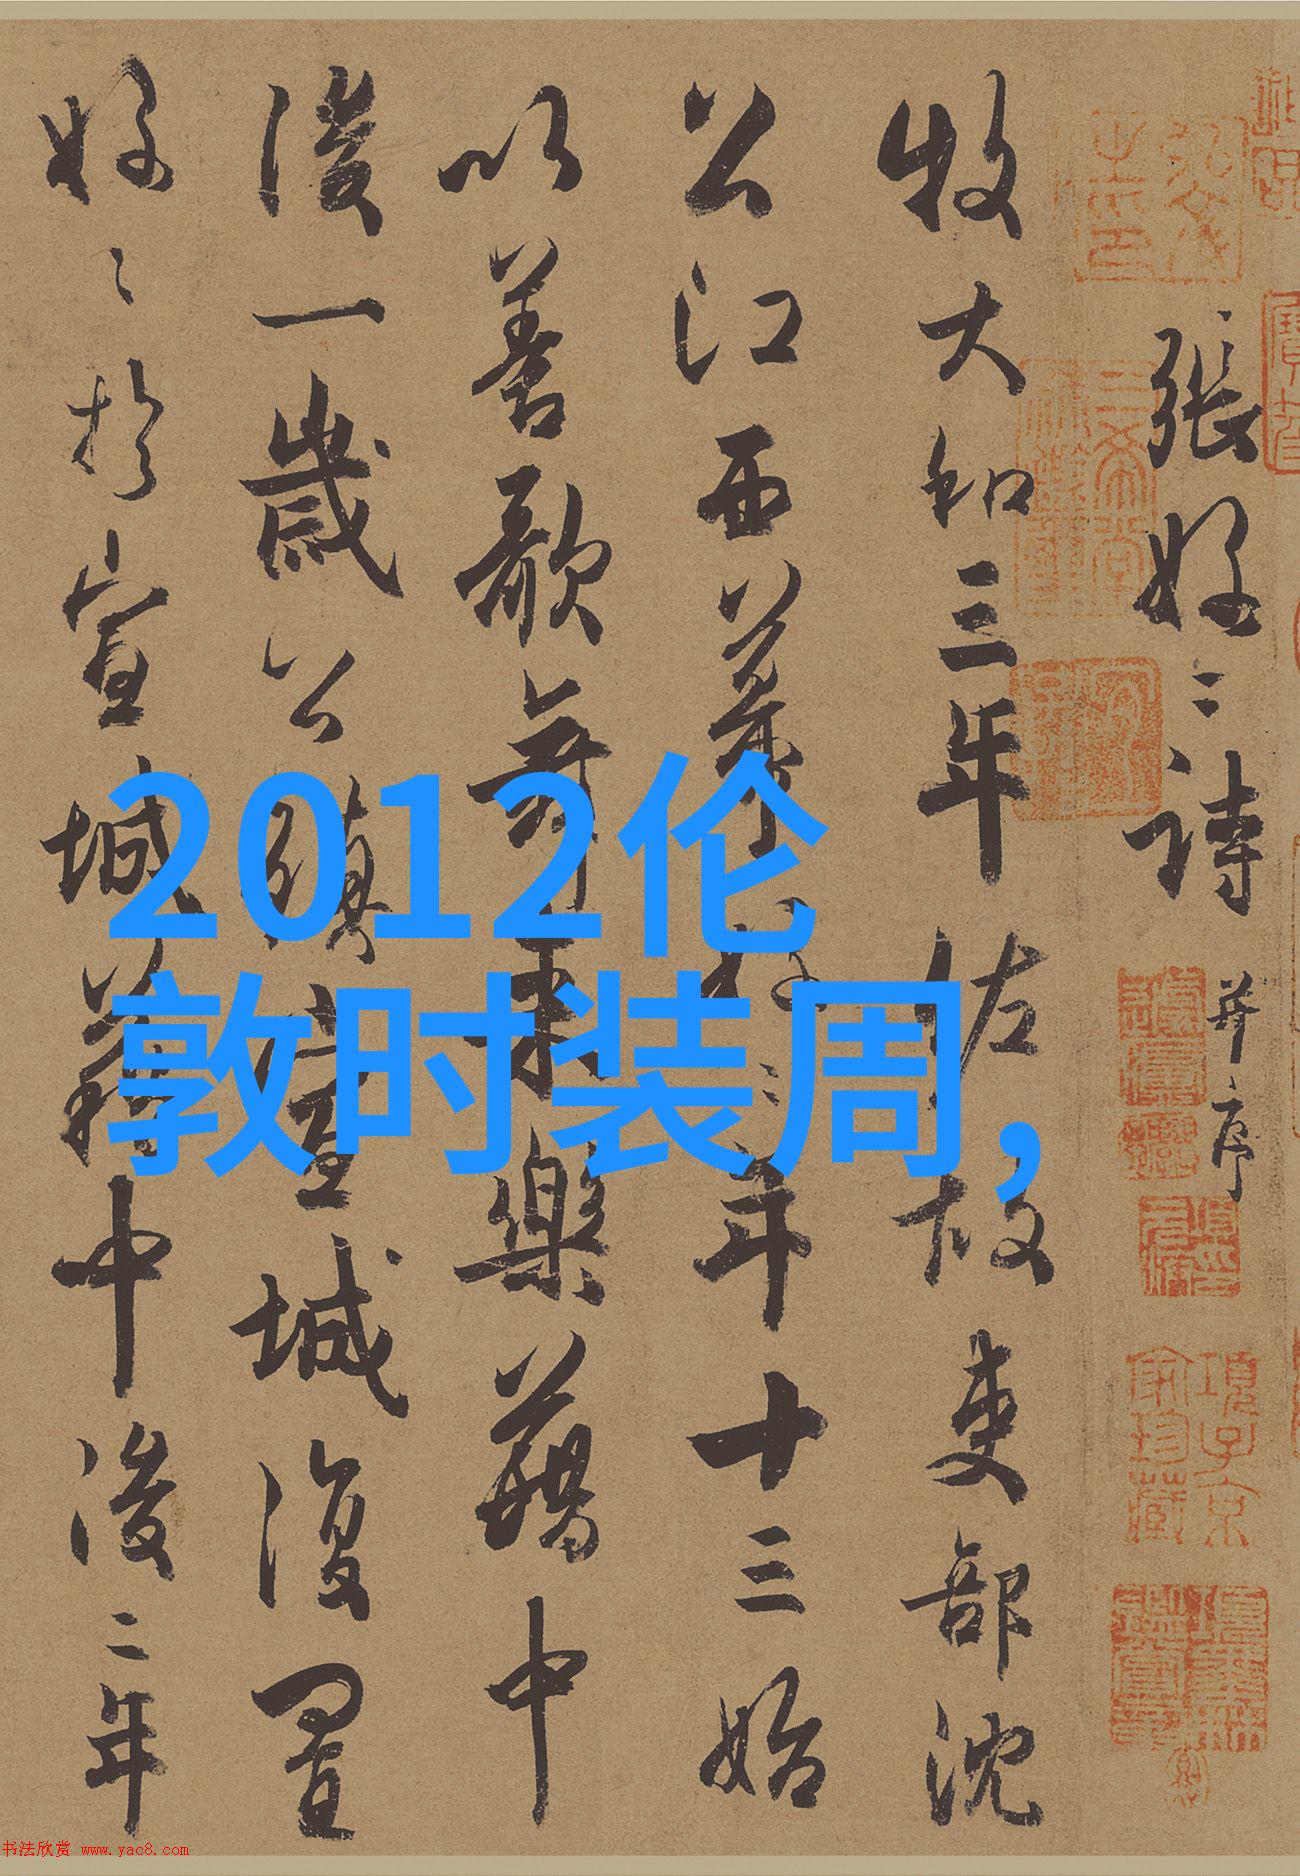 張好〻詩并序
牧大和三年佐故吏部沈
公江西幕好〻年十三始
以善歌舞來樂籍中
後一歲公鎮宣城復置
好〻於宣城籍中後二年
項子京家珍藏
2012伦
敦时装周,
书法欣赏 www.yac8.com